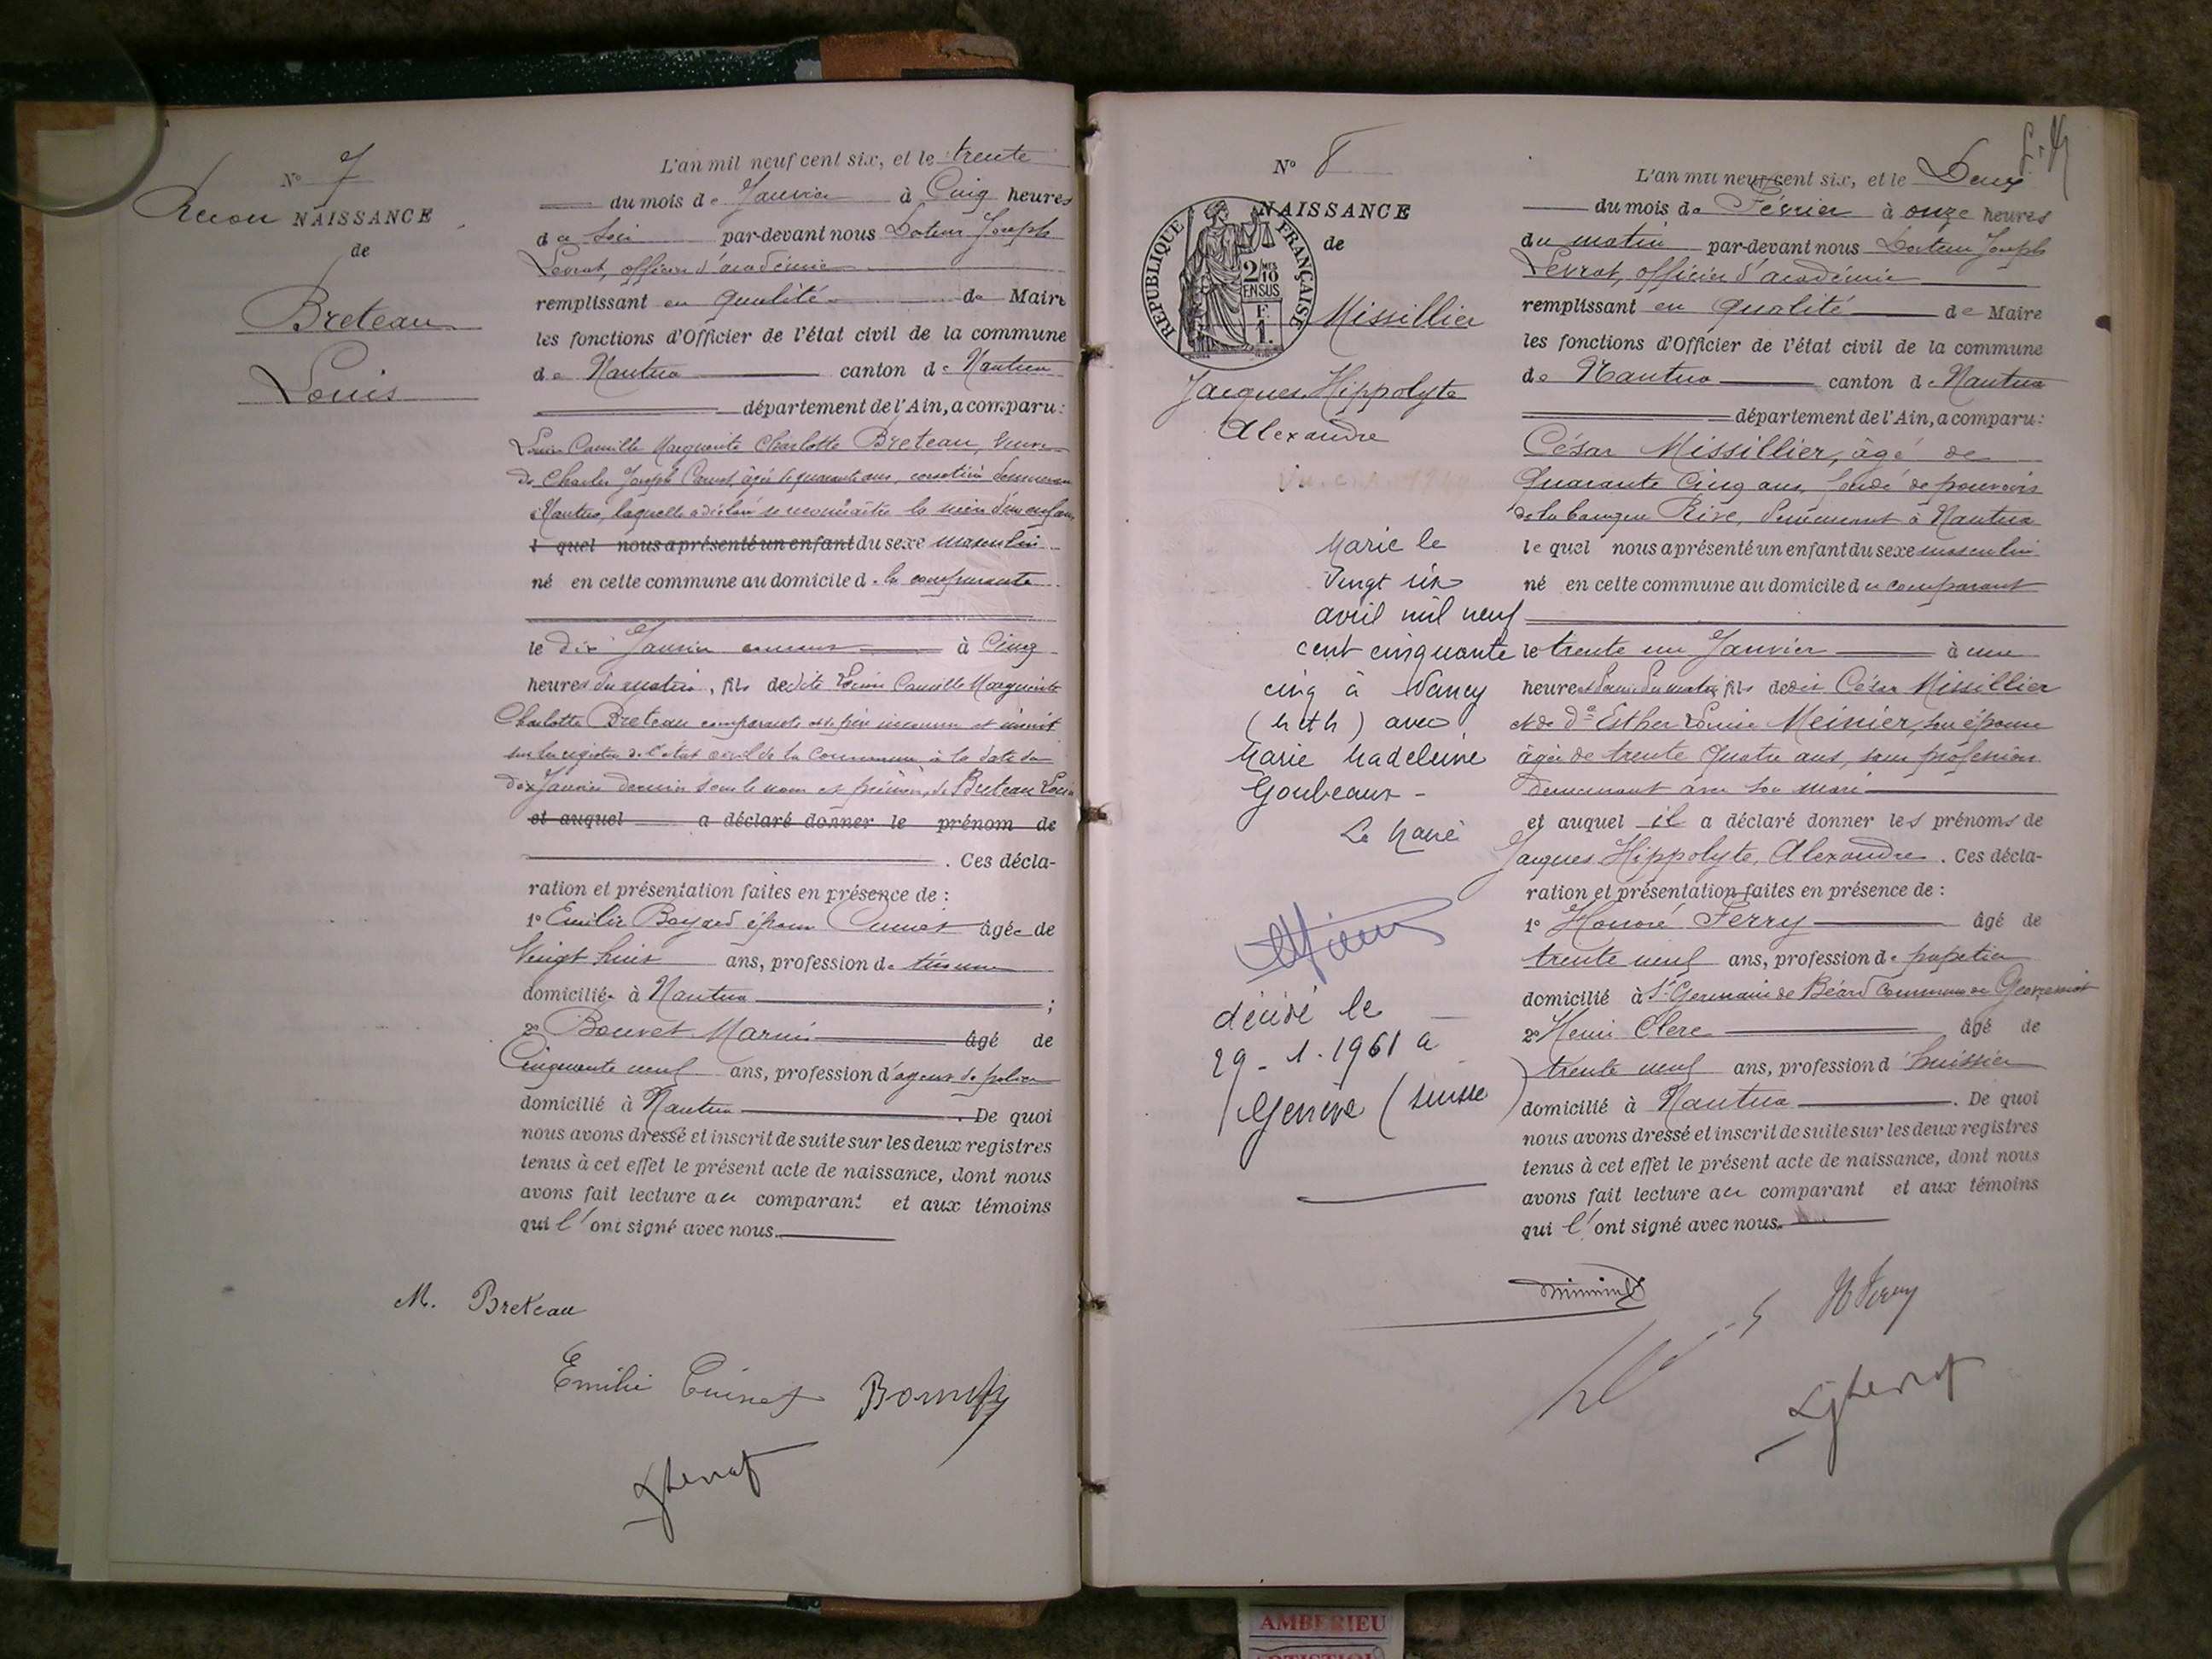 N° 7
NAISSANCE
de
Breteau
Louis
L'an mil neuf cent six, et le trente
du mois de Janvier à Cinq heures
du soir par-devant nous Docteur Joseph
Levrat, officier d'académie
remplissant en qualité de Maire
les fonctions d'Officier de l'état civil de la commune
de Nantua canton de Nantua
département de l'Ain, a comparu:
Camille Marguerite Charlotte Breteau, Veuve
de Charles Joseph âgée de quarante ans, demeurant
à Nantua, laquelle a déclaré reconnaître le sien d'un enfant
l quel nous a présenté un enfant du sexe masculin
né en cette commune au domicile de la comparante
le dix Janvier courant à Cinq
heures du matin, fils de dite Camille Marguerite
Charlotte Breteau comparante et de père inconnu et inscrit
sur les registres de l'état civil de la Commune à la date du
dix Janvier dernier sous le nom et prénom de Breteau Louis
et auquel a déclaré donner le prénom de
. Ces décla-
ration et présentation faites en présence de :
1° Emilie épouse Cuinet âgée de
Vingt huit ans, profession de
domiciliée à Nantua ;
2° Bouvet âgé de
Cinquante neuf ans, profession d'agent de police
domicilié à Nantua. De quoi
nous avons dressé et inscrit de suite sur les deux registres
tenus à cet effet le présent acte de naissance, dont nous
avons fait lecture au comparant et aux témoins
qui l'ont signé avec nous.
M. Breteau
Emilie Cuinet
N° 8
NAISSANCE
de
RÉPUBLIQUE FRANÇAISE
2/10 MES
EN SUS
1 F.
Missillier
Jacques Hippolyte
Alexandre
Marié le
Vingt six
avril mil neuf
cent cinquante
cinq à Nancy
(M et M) avec
Marie Madeleine
Goubeaux -
Le Maire
décédé le
29 - 1. 1961 à
Genève (Suisse)
L'an mil neuf cent six, et le Deux
du mois de Février à onze heures
du matin par-devant nous Docteur Joseph
Levrat, officier d'académie
remplissant en qualité de Maire
les fonctions d'Officier de l'état civil de la commune
de Nantua canton de Nantua
département de l'Ain, a comparu:
César Missillier, âgé de
Quarante Cinq ans, fondé de pouvoirs
de la banque Rive, demeurant à Nantua
lequel nous a présenté un enfant du sexe masculin
né en cette commune au domicile du comparant
le trente un Janvier à une
heure du matin, fils de dit César Missillier
et de De Esther Louise Meinier, son épouse
âgée de trente quatre ans, sans profession
demeurant avec son mari
et auquel il a déclaré donner les prénoms de
Jacques Hippolyte, Alexandre. Ces décla-
ration et présentation faites en présence de :
1° Honoré Ferry âgé de
trente neuf ans, profession de papetier
domicilié à St Germain de Béard Commune de Geovreissiat
2° Henri Clerc âgé de
trente neuf ans, profession d'huissier
domicilié à Nantua. De quoi
nous avons dressé et inscrit de suite sur les deux registres
tenus à cet effet le présent acte de naissance, dont nous
avons fait lecture au comparant et aux témoins
qui l'ont signé avec nous.
H Ferry
AMBERIEU